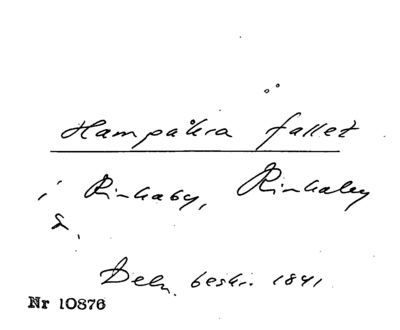 Hampåkra fallet
i Rinkaby, Rinkaby
s.
Deln. beskr. 1841
Nr 10876